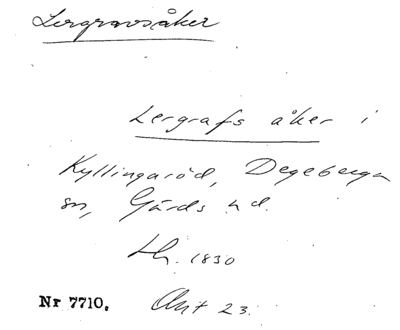 Lergravsåker
Lergrafs åker i
Kyllingaröd, Degeberga
sn, Gärds hd.
Lh. 1830
Nr 7710. Akt 23.